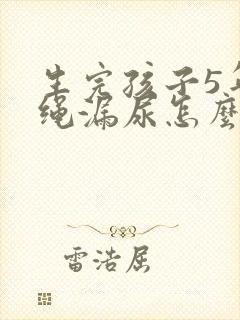 生完孩子5年
绳漏尿怎麽
雷浩居